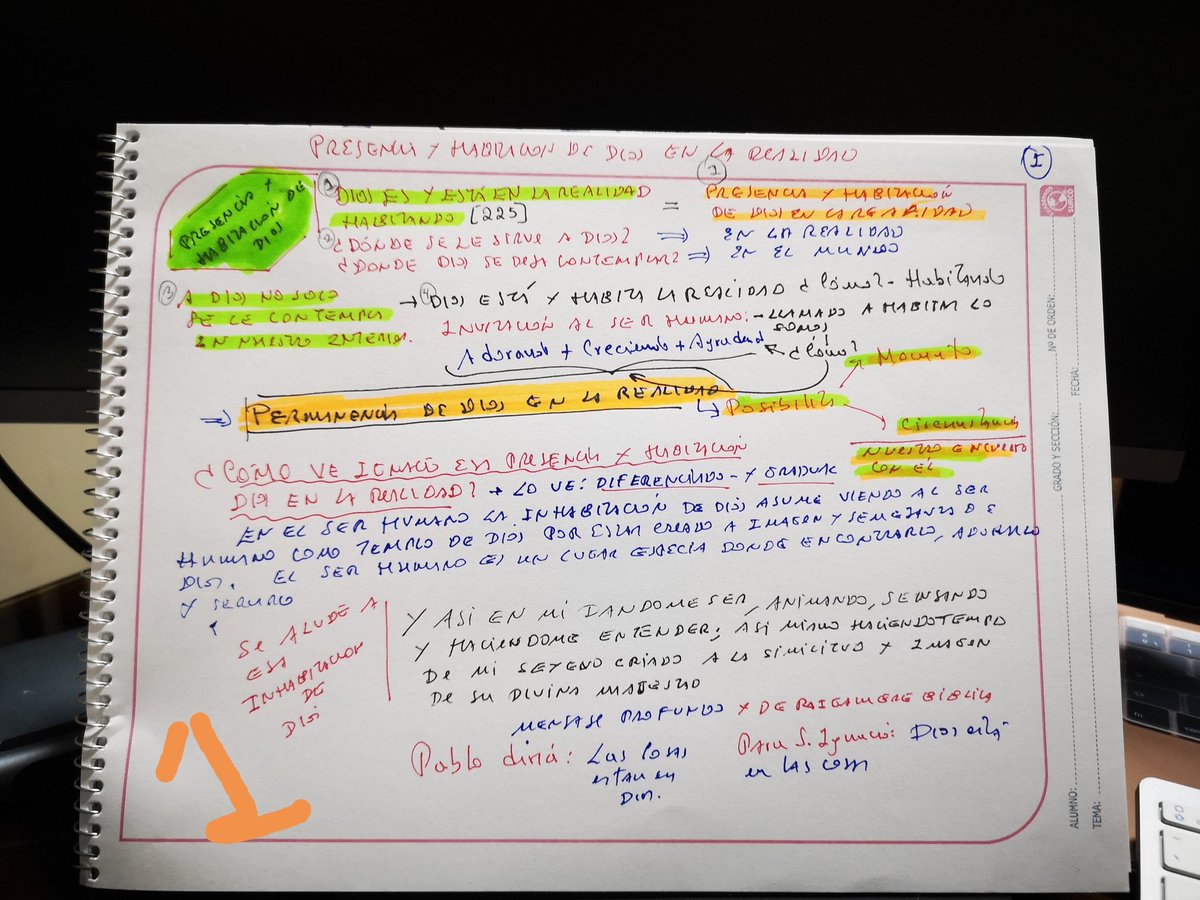 PRESENCIA Y HABITACION DE DIOS EN LA REALIDAD
I
PRESENCIA +
HABITACION DE
DIOS
1 DIOS ES Y ESTÁ EN LA REALIDAD
HABITANDO [225]
=
1
PRESENCIA Y HABITACIÓN
DE DIOS EN LA REALIDAD
2 ¿DÓNDE SE LE SIRVE A DIOS? ⇒ EN LA REALIDAD
¿DONDE DIOS SE DEJA CONTEMPLAR? ⇒ EN EL MUNDO
3 A DIOS NO SOLO
SE LE CONTEMPLA
EN NUESTRO INTERIOR.
→ 4 DIOS ESTÁ Y HABITA LA REALIDAD ¿Cómo? - Habitando
INVITACIÓN AL SER HUMANO: - LLAMADO A HABITAR LO
SOMOS
Adorando + Creciendo + Agradend ← ¿Cómo?
⇒ PERMANENCIA DE DIOS EN LA REALIDAD
Posibilita
Momento
Circunstancia
NUESTRO ENCUENTRO
CON EL
¿CÓMO VE IGNACIO ESA PRESENCIA Y HABITACIÓN
DIOS EN LA REALIDAD? → LO VE: DIFERENCIADO - Y GRADUAL
EN EL SER HUMANO LA INHABITACIÓN DE DIOS ASUME VIENDO AL SER
HUMANO COMO TEMPLO DE DIOS POR ESTAR CREADO A IMAGEN Y SEMEJANZA DE
DIOS. EL SER HUMANO ES UN LUGAR ESPECIA DONDE ENCONTRARLO, ADORARLO
Y SERVIRLO
SE ALUDE A
ESA
INHABITACION
DE
DIOS
Y ASI EN MI DANDOME SER, ANIMANDO, SENSANDO
Y HACIENDOME ENTENDER; ASI MISMO HACIENDO TEMPLO
DE MI SEYENDO CRIADO A LA SIMILITUD Y IMAGEN
DE SU DIVINA MAJESTAD
MENSAJE PROFUNDO Y DE RAIGAMBRE BÍBLICA
Pablo diría: Las cosas
estan en
Dios.
Para S. Ignacio: Dios está
en las cosas
1
Nº DE ORDEN:
FECHA:
GRADO Y SECCIÓN:
ALUMNO:
TEMA: